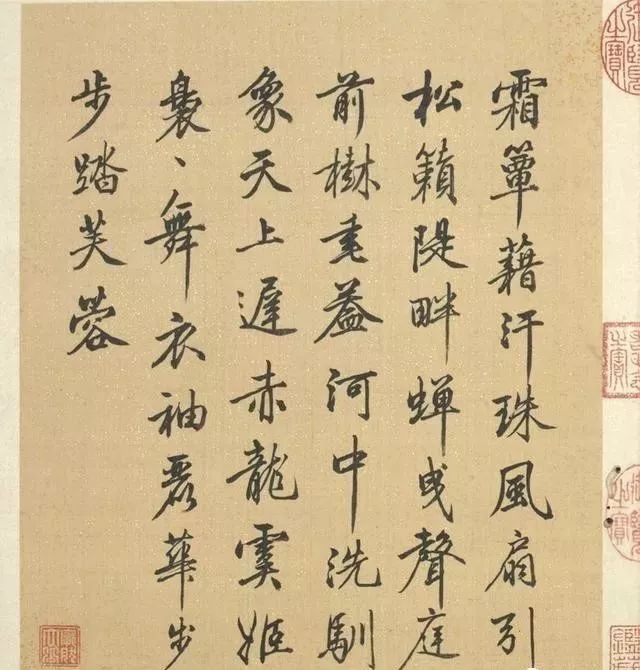 霜簟藉汗珠風扇引
松籟隄畔蟬曳聲庭
前樹垂葢河中洗馴
象天上遲赤龍虞姬
裊〻舞衣袖麗華步
步踏芙蓉